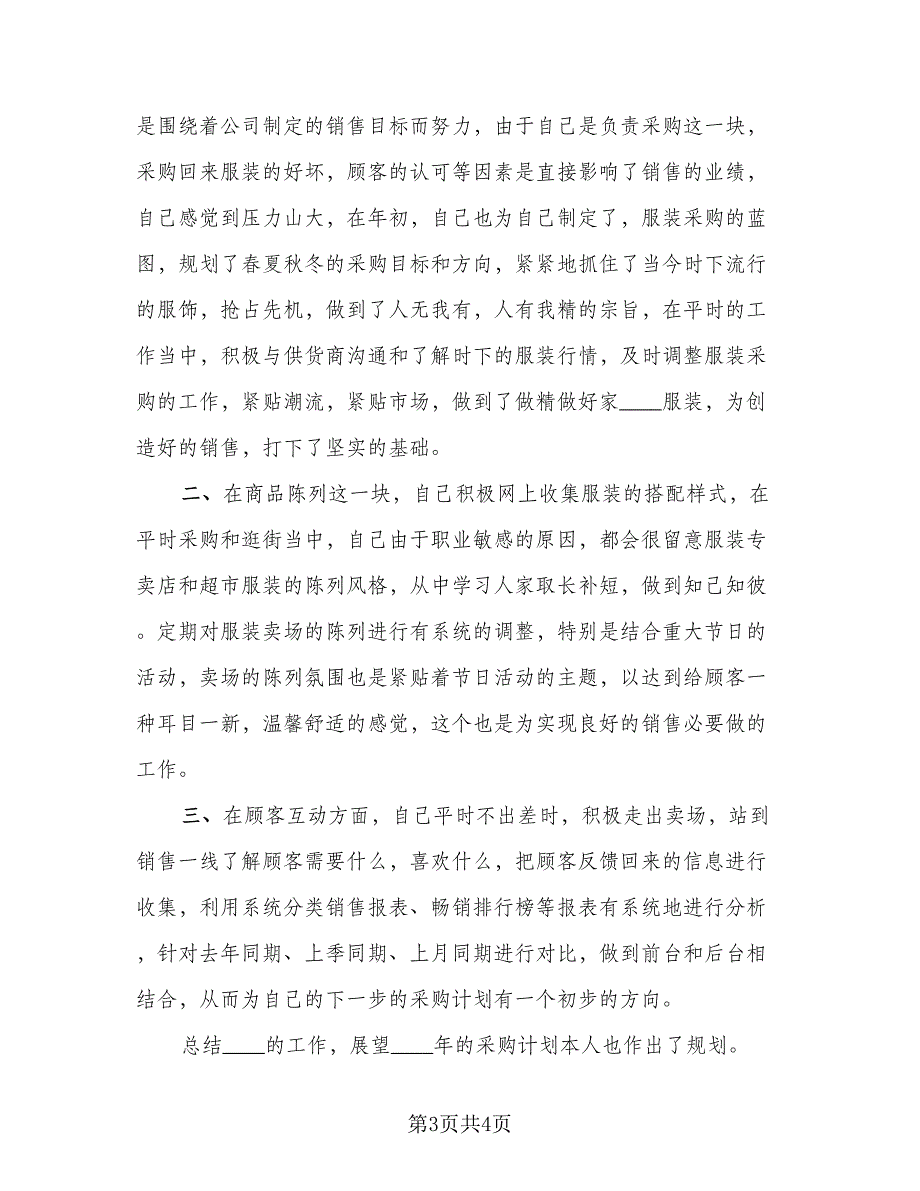 是围绕着公司制定的销售目标而努力，由于自己是负责采购这一块，
采购回来服装的好坏，顾客的认可等因素是直接影响了销售的业绩，
自己感觉到压力山大，在年初，自己也为自己制定了，服装采购的蓝
图，规划了春夏秋冬的采购目标和方向，紧紧地抓住了当今时下流行
的服饰，抢占先机，做到了人无我有，人有我精的宗旨，在平时的工
作当中，积极与供货商沟通和了解时下的服装行情，及时调整服装采
购的工作，紧贴潮流，紧贴市场，做到了做精做好家____服装，为创
造好的销售，打下了坚实的基础。
二、在商品陈列这一块，自己积极网上收集服装的搭配样式，在
平时采购和逛街当中，自己由于职业敏感的原因，都会很留意服装专
卖店和超市服装的陈列风格，从中学习人家取长补短，做到知己知彼
。定期对服装卖场的陈列进行有系统的调整，特别是结合重大节日的
活动，卖场的陈列氛围也是紧贴着节日活动的主题，以达到给顾客一
种耳目一新，温馨舒适的感觉，这个也是为实现良好的销售必要做的
工作。
三、在顾客互动方面，自己平时不出差时，积极走出卖场，站到
销售一线了解顾客需要什么，喜欢什么，把顾客反馈回来的信息进行
收集，利用系统分类销售报表、畅销排行榜等报表有系统地进行分析
，针对去年同期、上季同期、上月同期进行对比，做到前台和后台相
结合，从而为自己的下一步的采购计划有一个初步的方向。
总结____的工作，展望____年的采购计划本人也作出了规划。
第3页共4页